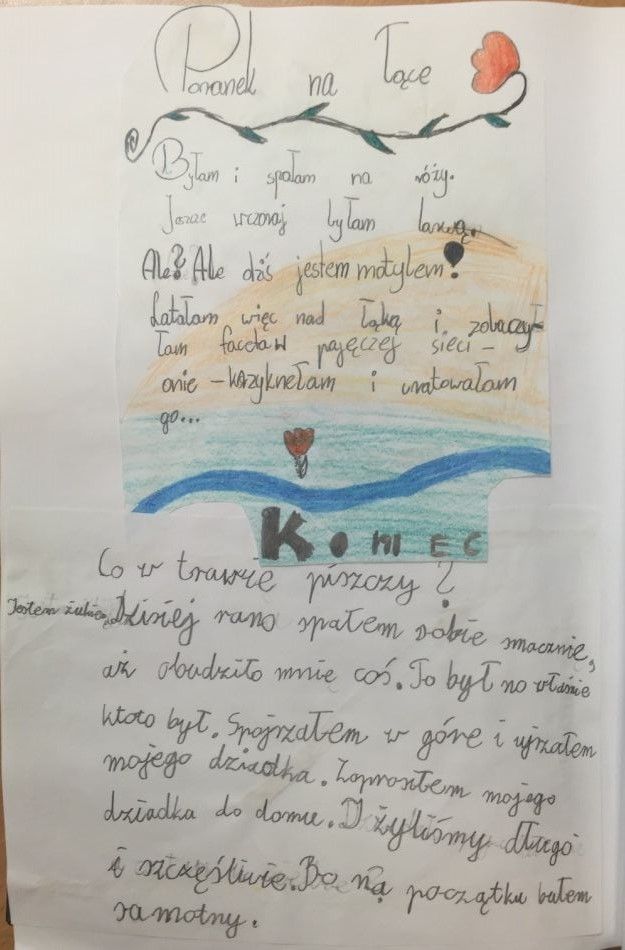 Poranek na łące
Byłam i spałam na róży.
Jeszcze wczoraj byłam larwą.
Ale? Ale dziś jestem motylem!
Latałam więc nad łąką i zobaczył-
łam faceta w pajęczej sieci -
onie - krzyknełam i uratowałam
go...
KONIEC
Co w trawie piszczy?
Jestem żukiem. Dzisiej rano spałem sobie smacznie,
aż obudziło mnie coś. To był no właśnie
kto to był. Spojrzałem w góre i ujrzałem
mojego dziadka. Zaprosiłem mojego
dziadka do domu. I żyliśmy długo
i szczęśliwie. Bo na początku bałem
samotny.